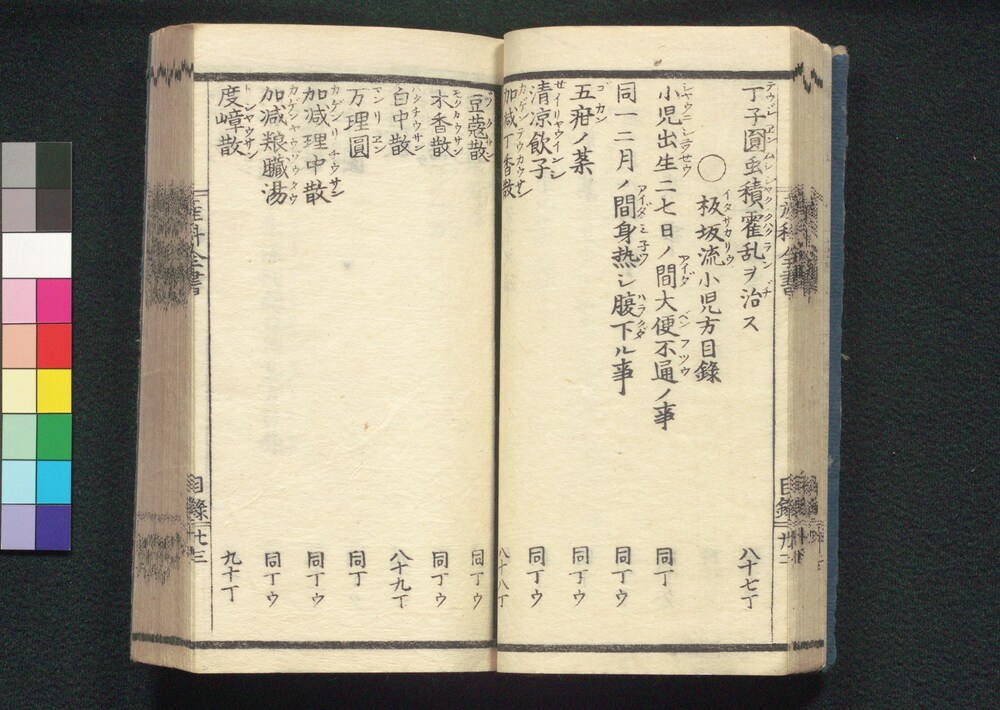 丁子圓虫積霍乱ヲ治ス 八十七丁
○板坂流小児方目錄
小児出生二七日ノ間大便不通ノ事 同丁
同一二月ノ間身热シ腹下ル事 同丁ウ
五疳ノ薬 同丁ウ
清凉飲子 同丁ウ
加減丁香散 八十八丁
豆蔻散 同丁ウ
木香散 同丁ウ
白中散 八十九丁
万理圓 同丁
加減理中散 同丁ウ
加減粮臓湯 同丁ウ
度嶂散 九十丁
産科全書 目錄 廿三